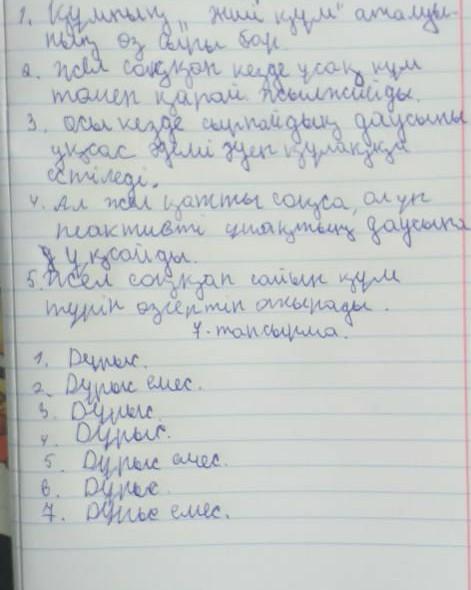 1. Құмның „Әнші құм" аталуы-
ның өз сыры бар.
2. Жел соққан кезде ұсақ құм
төмен қарай жылжиды.
3. Осы кезде сырнайдың даусына
ұқсас әдемі әуен құлаққа
естіледі.
4. Ал жел қатты соқса, ол үн
реактивті ұшақтың даусына
ұқсайды.
5. Жел соққан сайын құм
түрін өзгертіп отырады.
7-тапсырма.
1. Дұрыс.
2. Дұрыс емес.
3. Дұрыс.
4. Дұрыс.
5. Дұрыс емес.
6. Дұрыс.
7. Дұрыс емес.